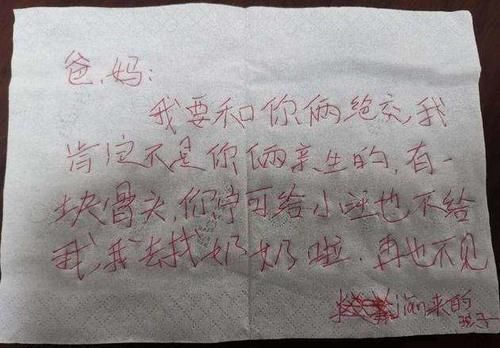 爸、妈:
我要和你俩绝交,我
肯定不是你俩亲生的,有一
块骨头,你宁可给小旺也不给
我,我去找奶奶啦,再也不见
jiǎn来的
孩子